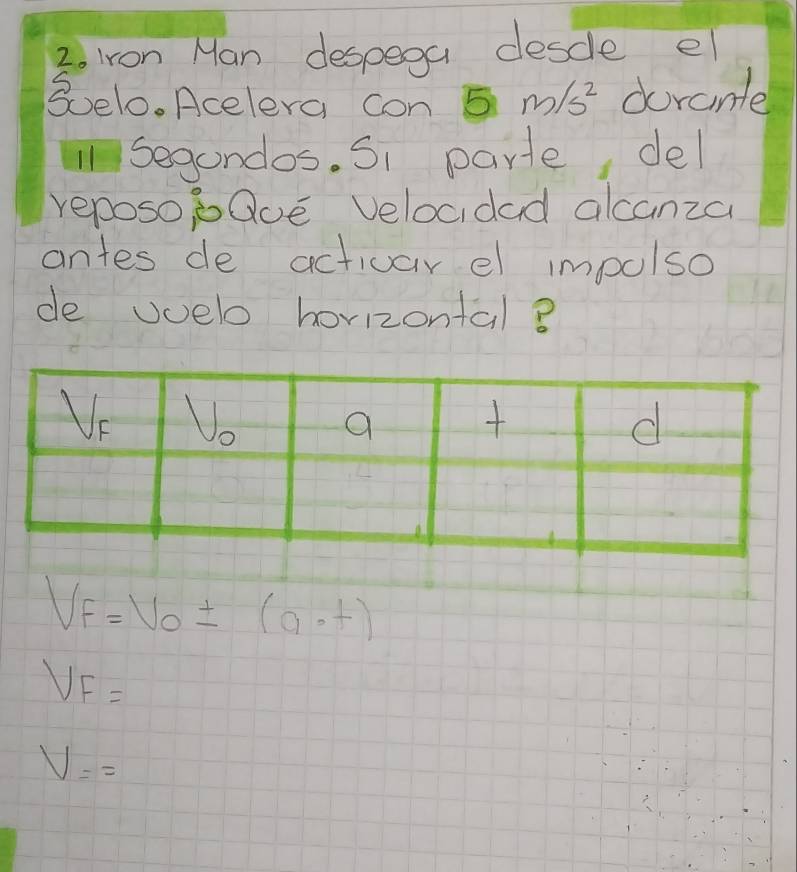 2. Iron Man despega desde el
Suelo. Acelera con 5 m/s² durante
11 Segundos. Si parte, del
reposo ¿Qué Velocidad alcanza
antes de activar el impulso
de vuelo horizontal?
VF Vo a t d
VF = Vo ± (a · t)
VF =
V = =